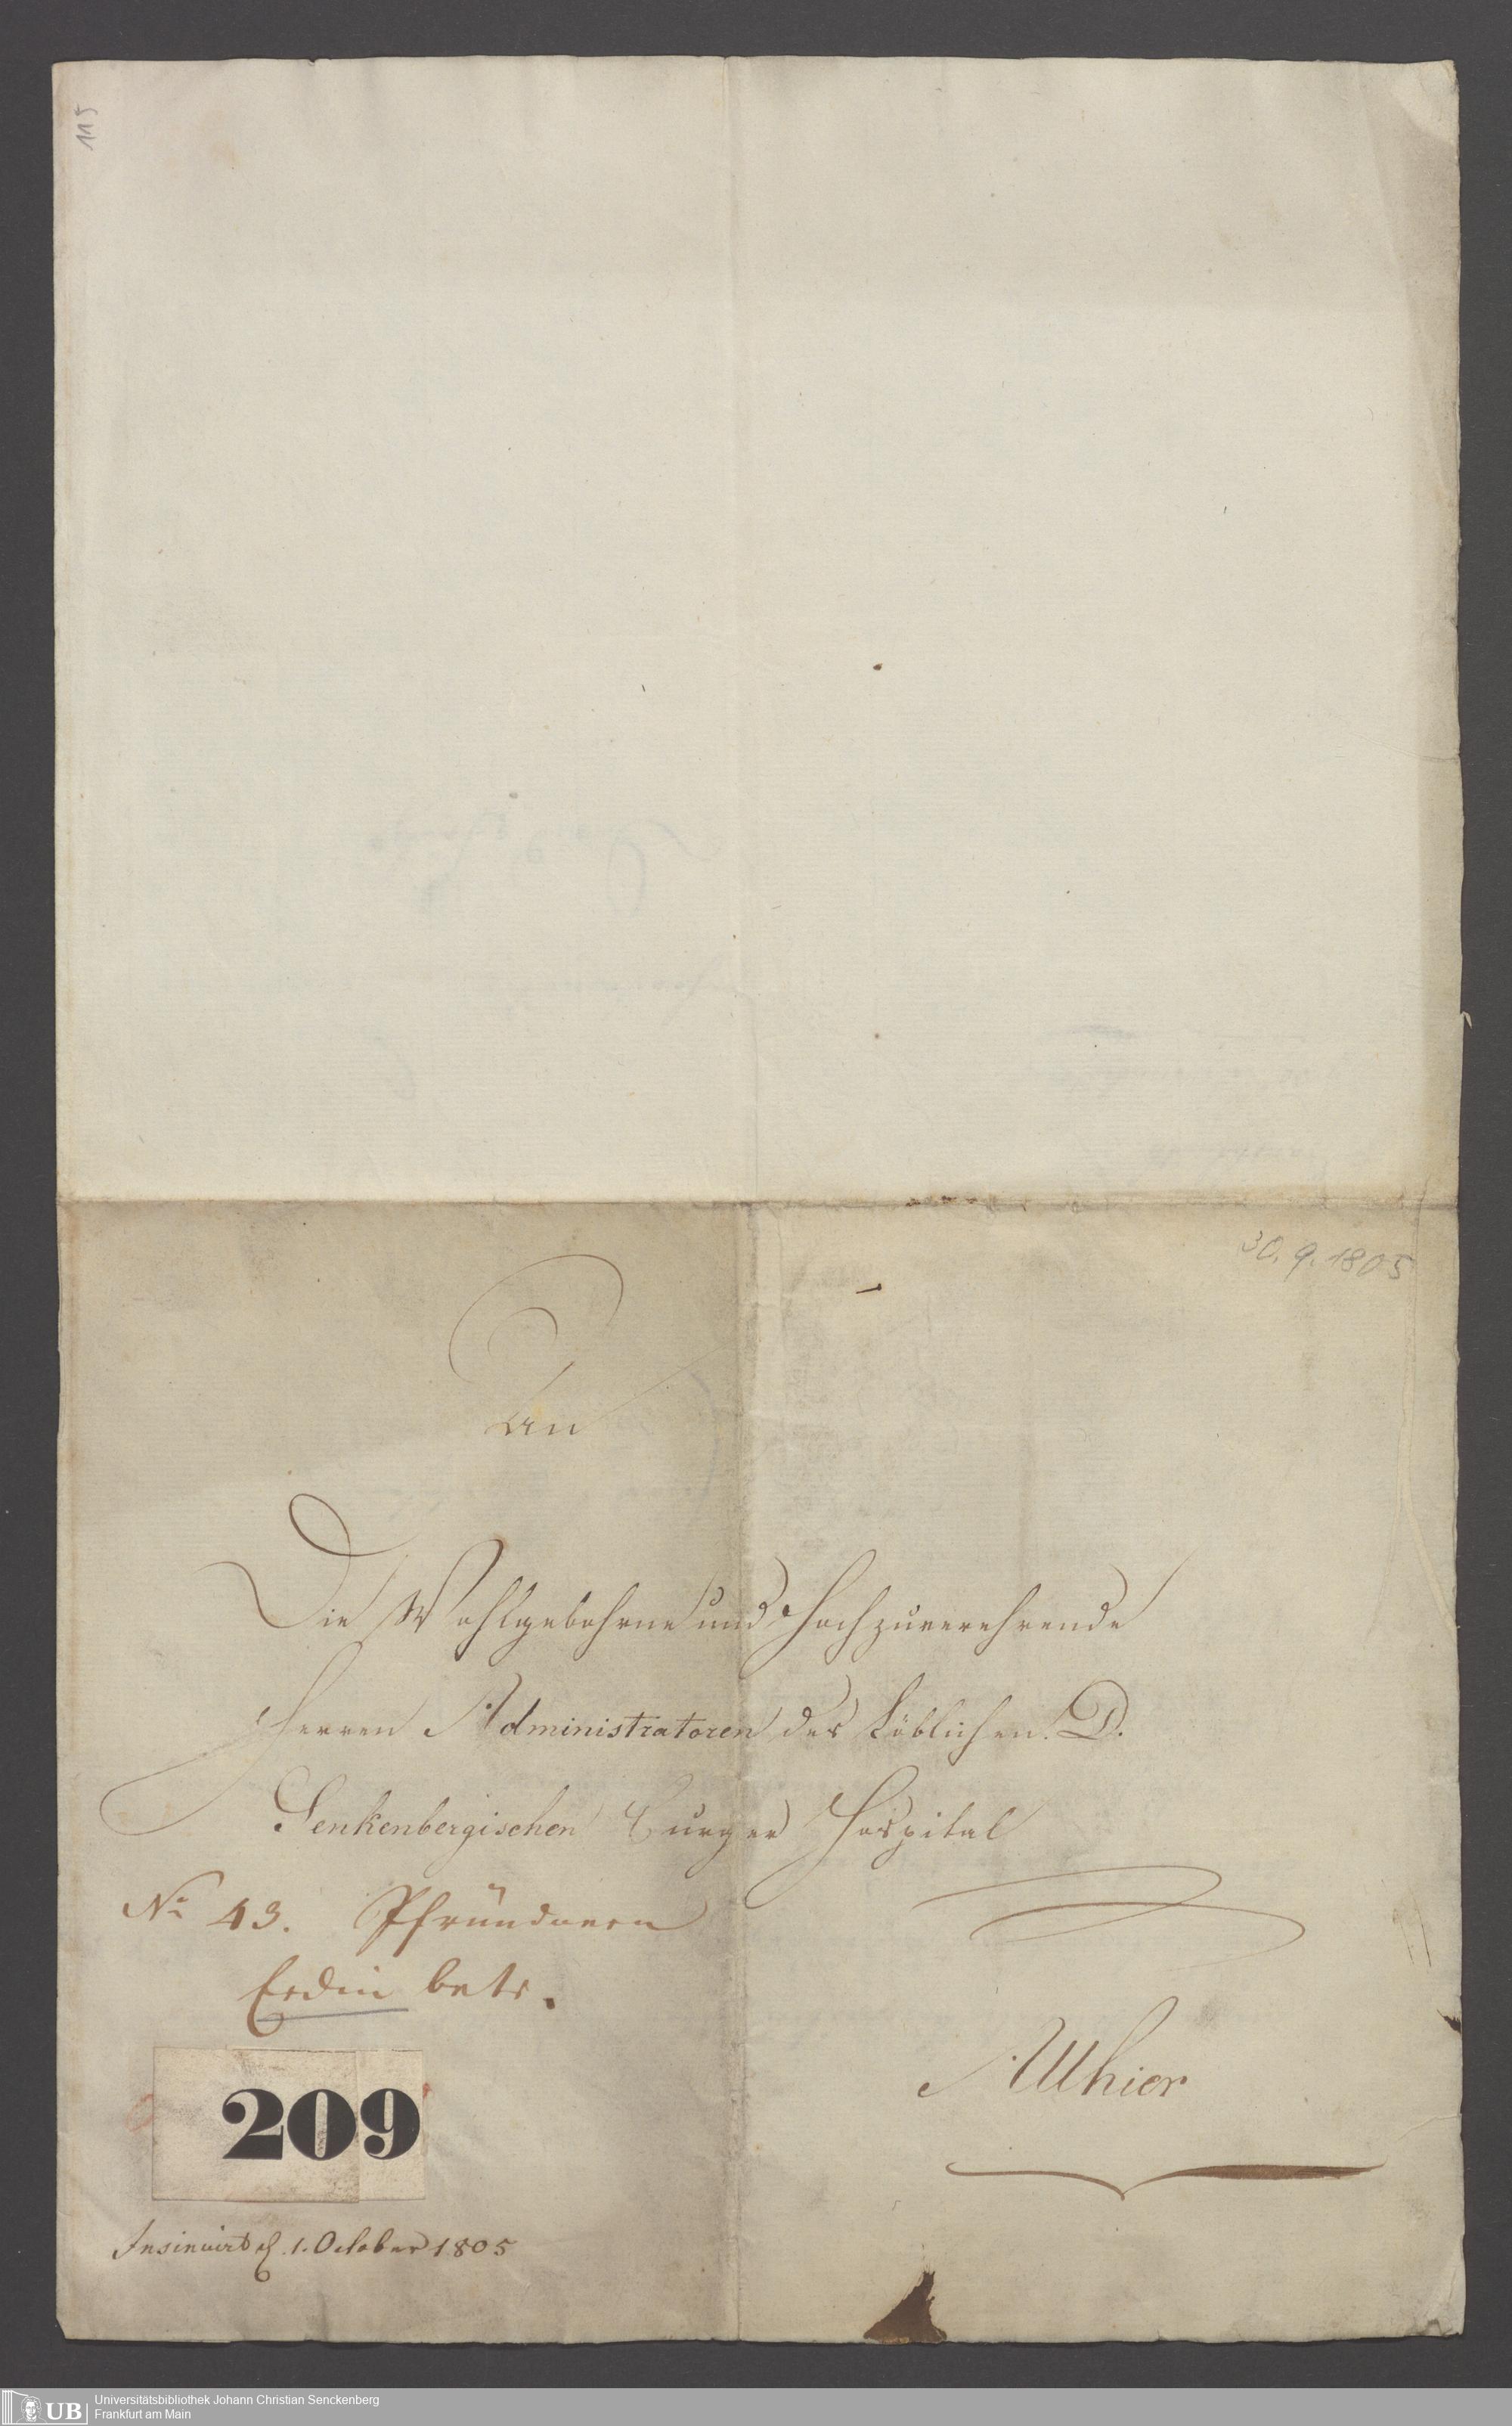 115
30.9.1805
An
Die Wohlgebohrne und Hochzuverehrende
Herren Administratoren des Löblichen D.
Senkenbergischen Burger Hospital
No 43. Pfründnern
Erdin betr.
Allhier
209
Insinuirt d. 1. October 1805
UB
Universitätsbibliothek Johann Christian Senckenberg
Frankfurt am Main